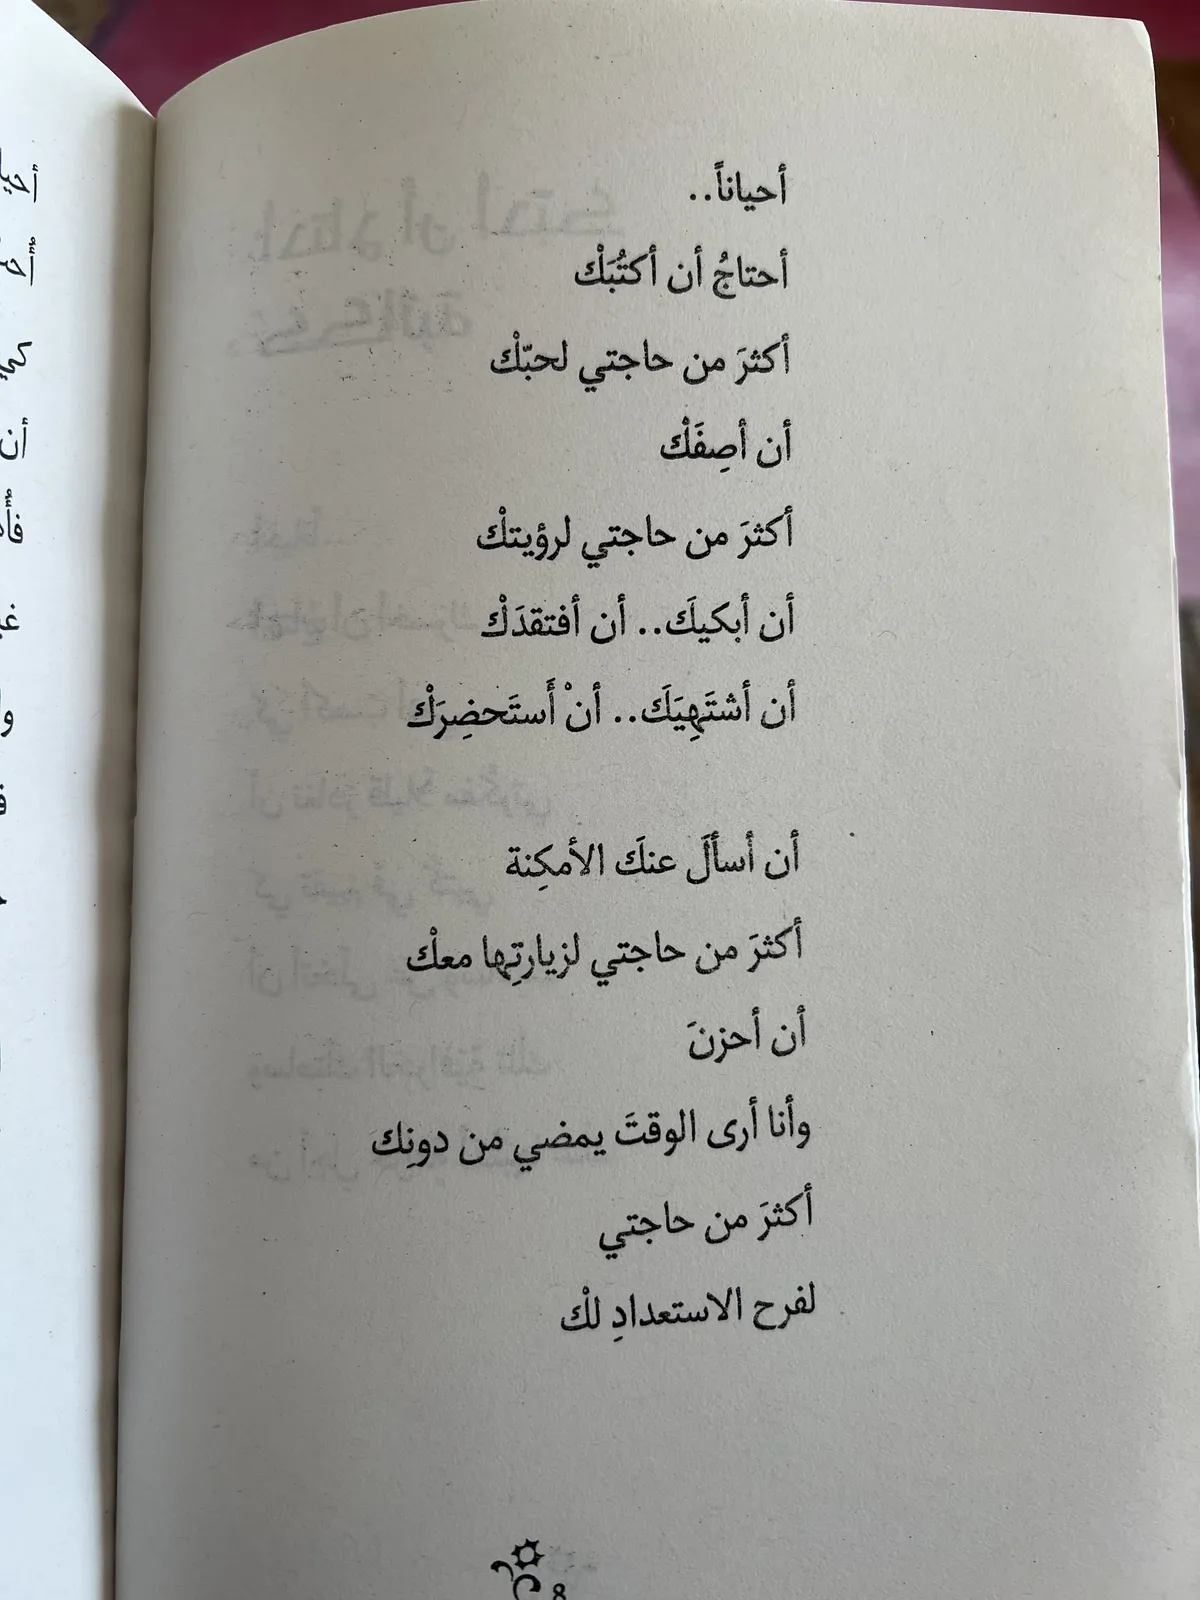 أحياناً..
أحتاجُ أن أكتُبَكْ
أكثرَ من حاجتي لحبّكْ
أن أصِفَكْ
أكثرَ من حاجتي لرؤيتكْ
أن أبكيكَ.. أن أفتقدَكْ
أن أشتَهِيَكَ.. أنْ أَستَحضِرَكْ
أن أسألَ عنكَ الأمكِنة
أكثرَ من حاجتي لزيارتِها معكْ
أن أحزنَ
وأنا أرى الوقتَ يمضي من دونِك
أكثرَ من حاجتي
لفرح الاستعدادِ لكْ
8